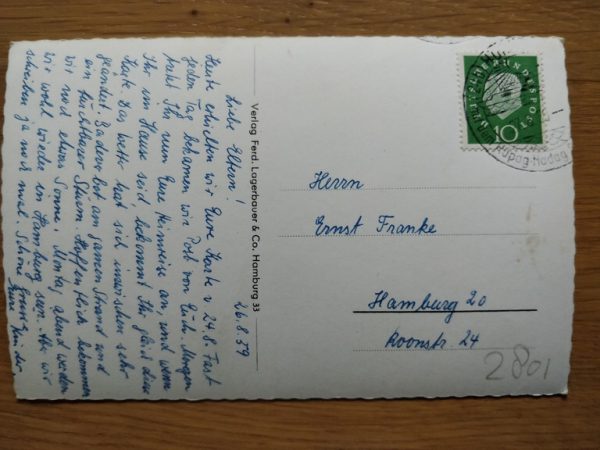 26.8.59
Liebe Eltern!
Heute erhielten wir Eure Karte v. 24.8. Fast
jeden Tag bekamen wir Post von Euch. Morgen
tretet Ihr nun Eure Heimreise an, und wenn
Ihr zu Hause seid bekommt Ihr gleich diese
Karte. Das Wetter hat sich inzwischen sehr
geändert. Gestern bot am ganzen Strand und
ein furchtbarer Sturm. Hoffentlich bekommen
wir noch etwas Sonne. Montag abend werden
wir wohl wieder in Hamburg sein. Aber wir
schreiben ja noch mal. Schöne
Verlag Ferd. Lagerbauer & Co. Hamburg 33
DEUTSCHE BUNDESPOST
10
Hapag-Hadag
Herrn
Ernst Franke
Hamburg 20
Roonstr. 24
2801